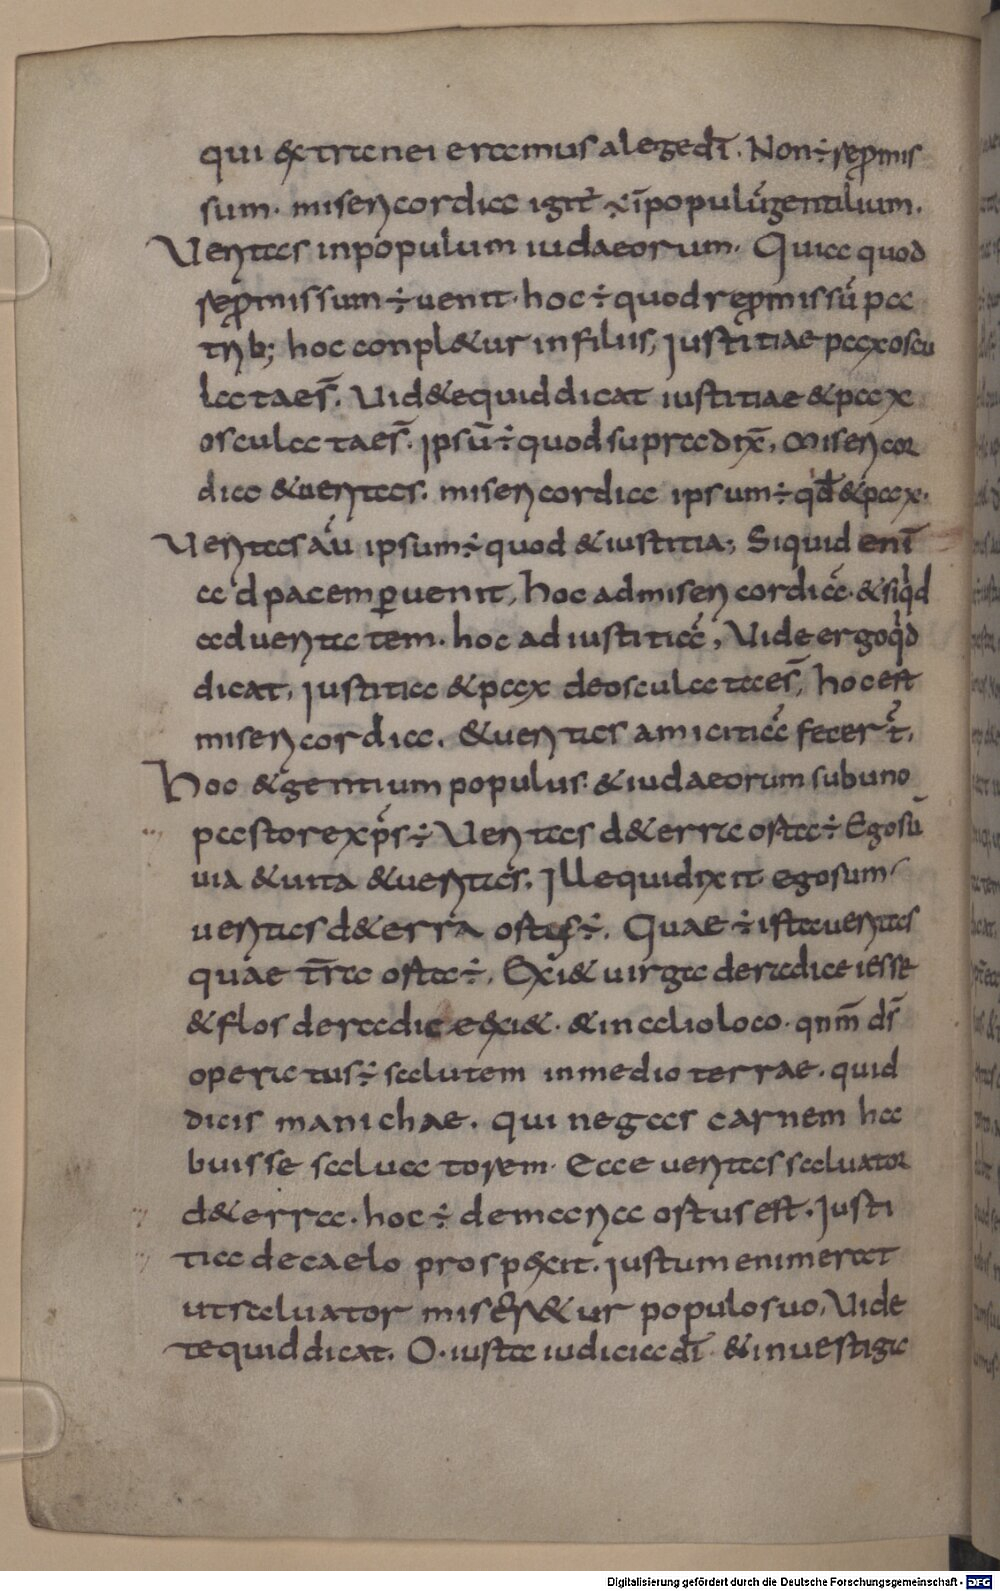 qui &xtranei eramus a lege dī. Non ÷ rep̄mis
sum. misericordia igit̄ ÷ īpopulū gentilium.
Ueritas inpopulum iudaeorum. Quia quod
rep̄missum ÷ uenit. hoc ÷ quod rep̄missū pa
trib; hoc conpl&ur infiliis, iustitiae pax oscu
lata es̄. Uid& equid dicat iustitiae & pax
osculata es̄. ipsū ÷ quod supra dix̄, miser icor
dia & ueritas. misericordia ipsum ÷ qd̄ & pax.
Ueritas aū ipsum ÷ quod & iustitia; Siquid enī
ad pacem ꝑuenit, hoc ad misericordiā. & siqd̄
ad ueritatem. hoc ad iustitiā, Uide ergo qd̄
dicat, iustitia & pax deosculata es̄, hoc est
misericordia. & ueritas amicitiā fecer̄t,
Hoc & gentium populus. & iudaeorum sub uno
pastore xp̄s ÷ Ueritas d&erra osta ÷ Ego sū
uia & uita & ueritas. Ille qui dixit ego sum
ueritas d&erra ostus ÷. Quae ÷ ista ueritas
quae tr̄ra osta ÷, Exi& uirga deradice iesse
& flos deradice exi&. & in alio loco. qnm̄ ds̄
operatus ÷ salutem in medio terrae. quid
dicis manichae. qui negas carnem ha
buisse saluatorem. Ecce ueritas saluator
d&erra. hoc ÷ de maria ostus est. Iusti
tia de caelo prosp&xit. iustum enim erat
ut saluator miser&ur populo suo, Uide
te quid dicat. O. iusta iudicia dī & inuestiga
Digitalisierung gefördert durch die Deutsche Forschungsgemeinschaft - DFG